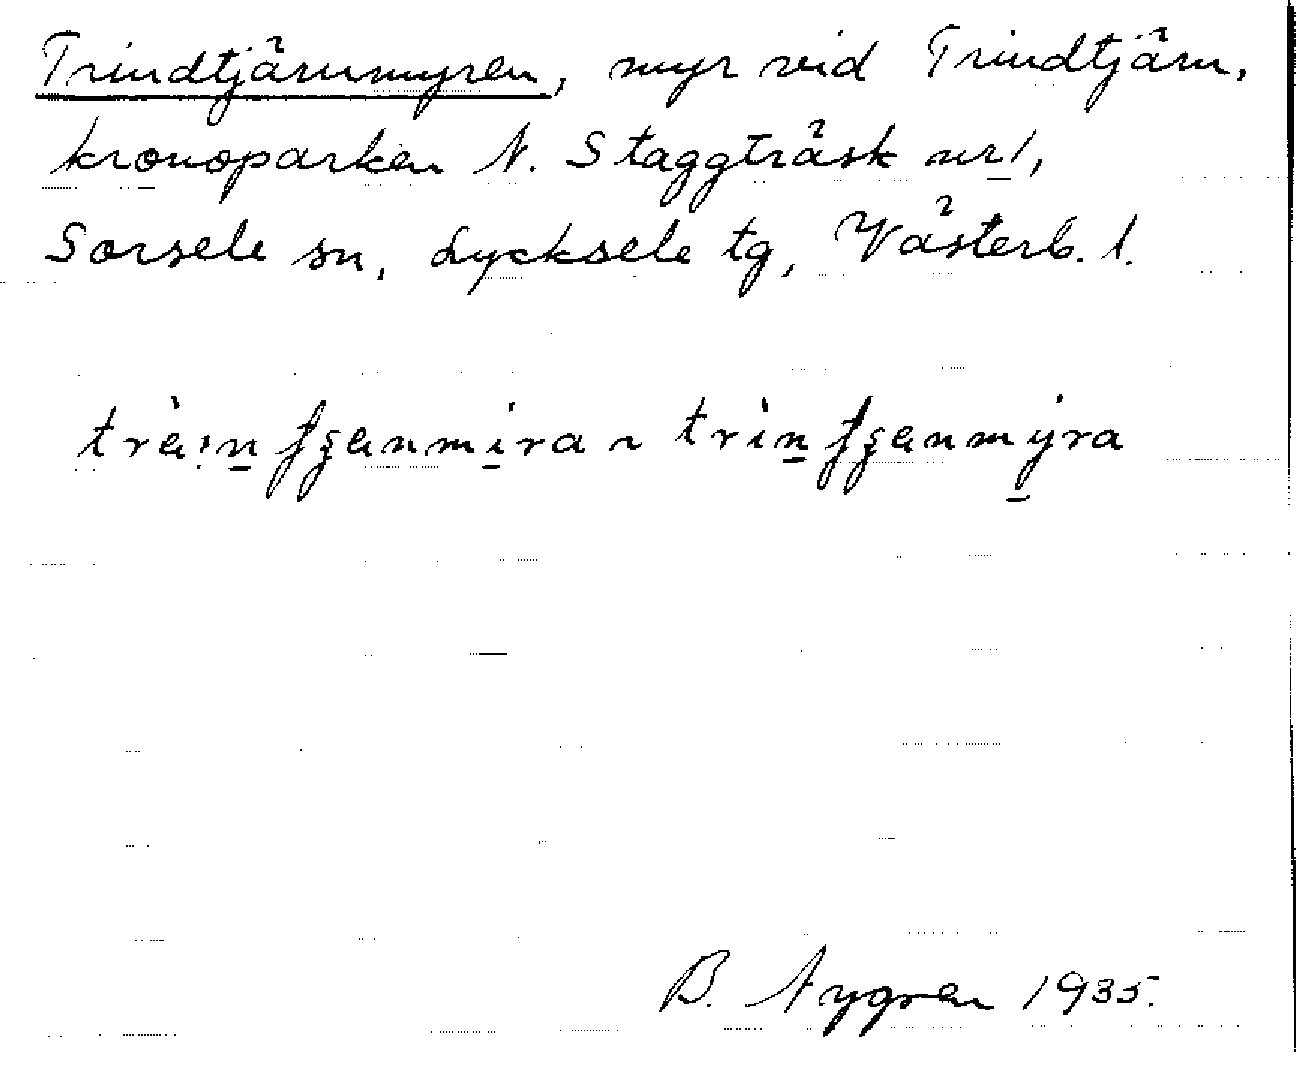 Trindtjärnmyren, myr vid Trindtjärn,
kronoparken N. Staggträsk nr 1,
Sorsele sn, Lycksele tg, Västerb. l.
B. Nygren 1935.